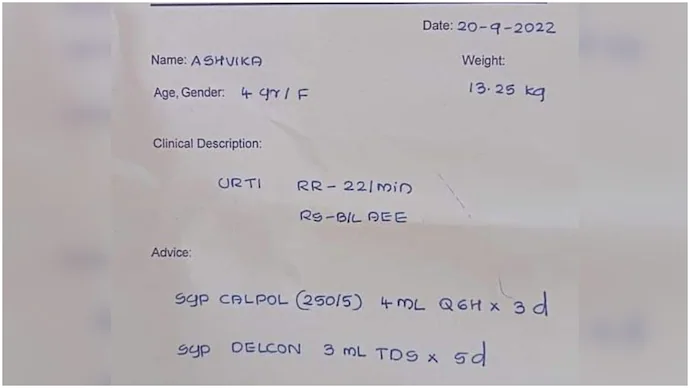 Date: 20-9-2022
Name: ASHVIKA Weight:
Age, Gender: 4 yr / F 13.25 kg
Clinical Description:
URTI RR - 22/min
RS-B/L AEE
Advice:
Syp CALPOL (250/5) 4 ML Q6H x 3 d
Syp DELCON 3 ML TDS x 5d